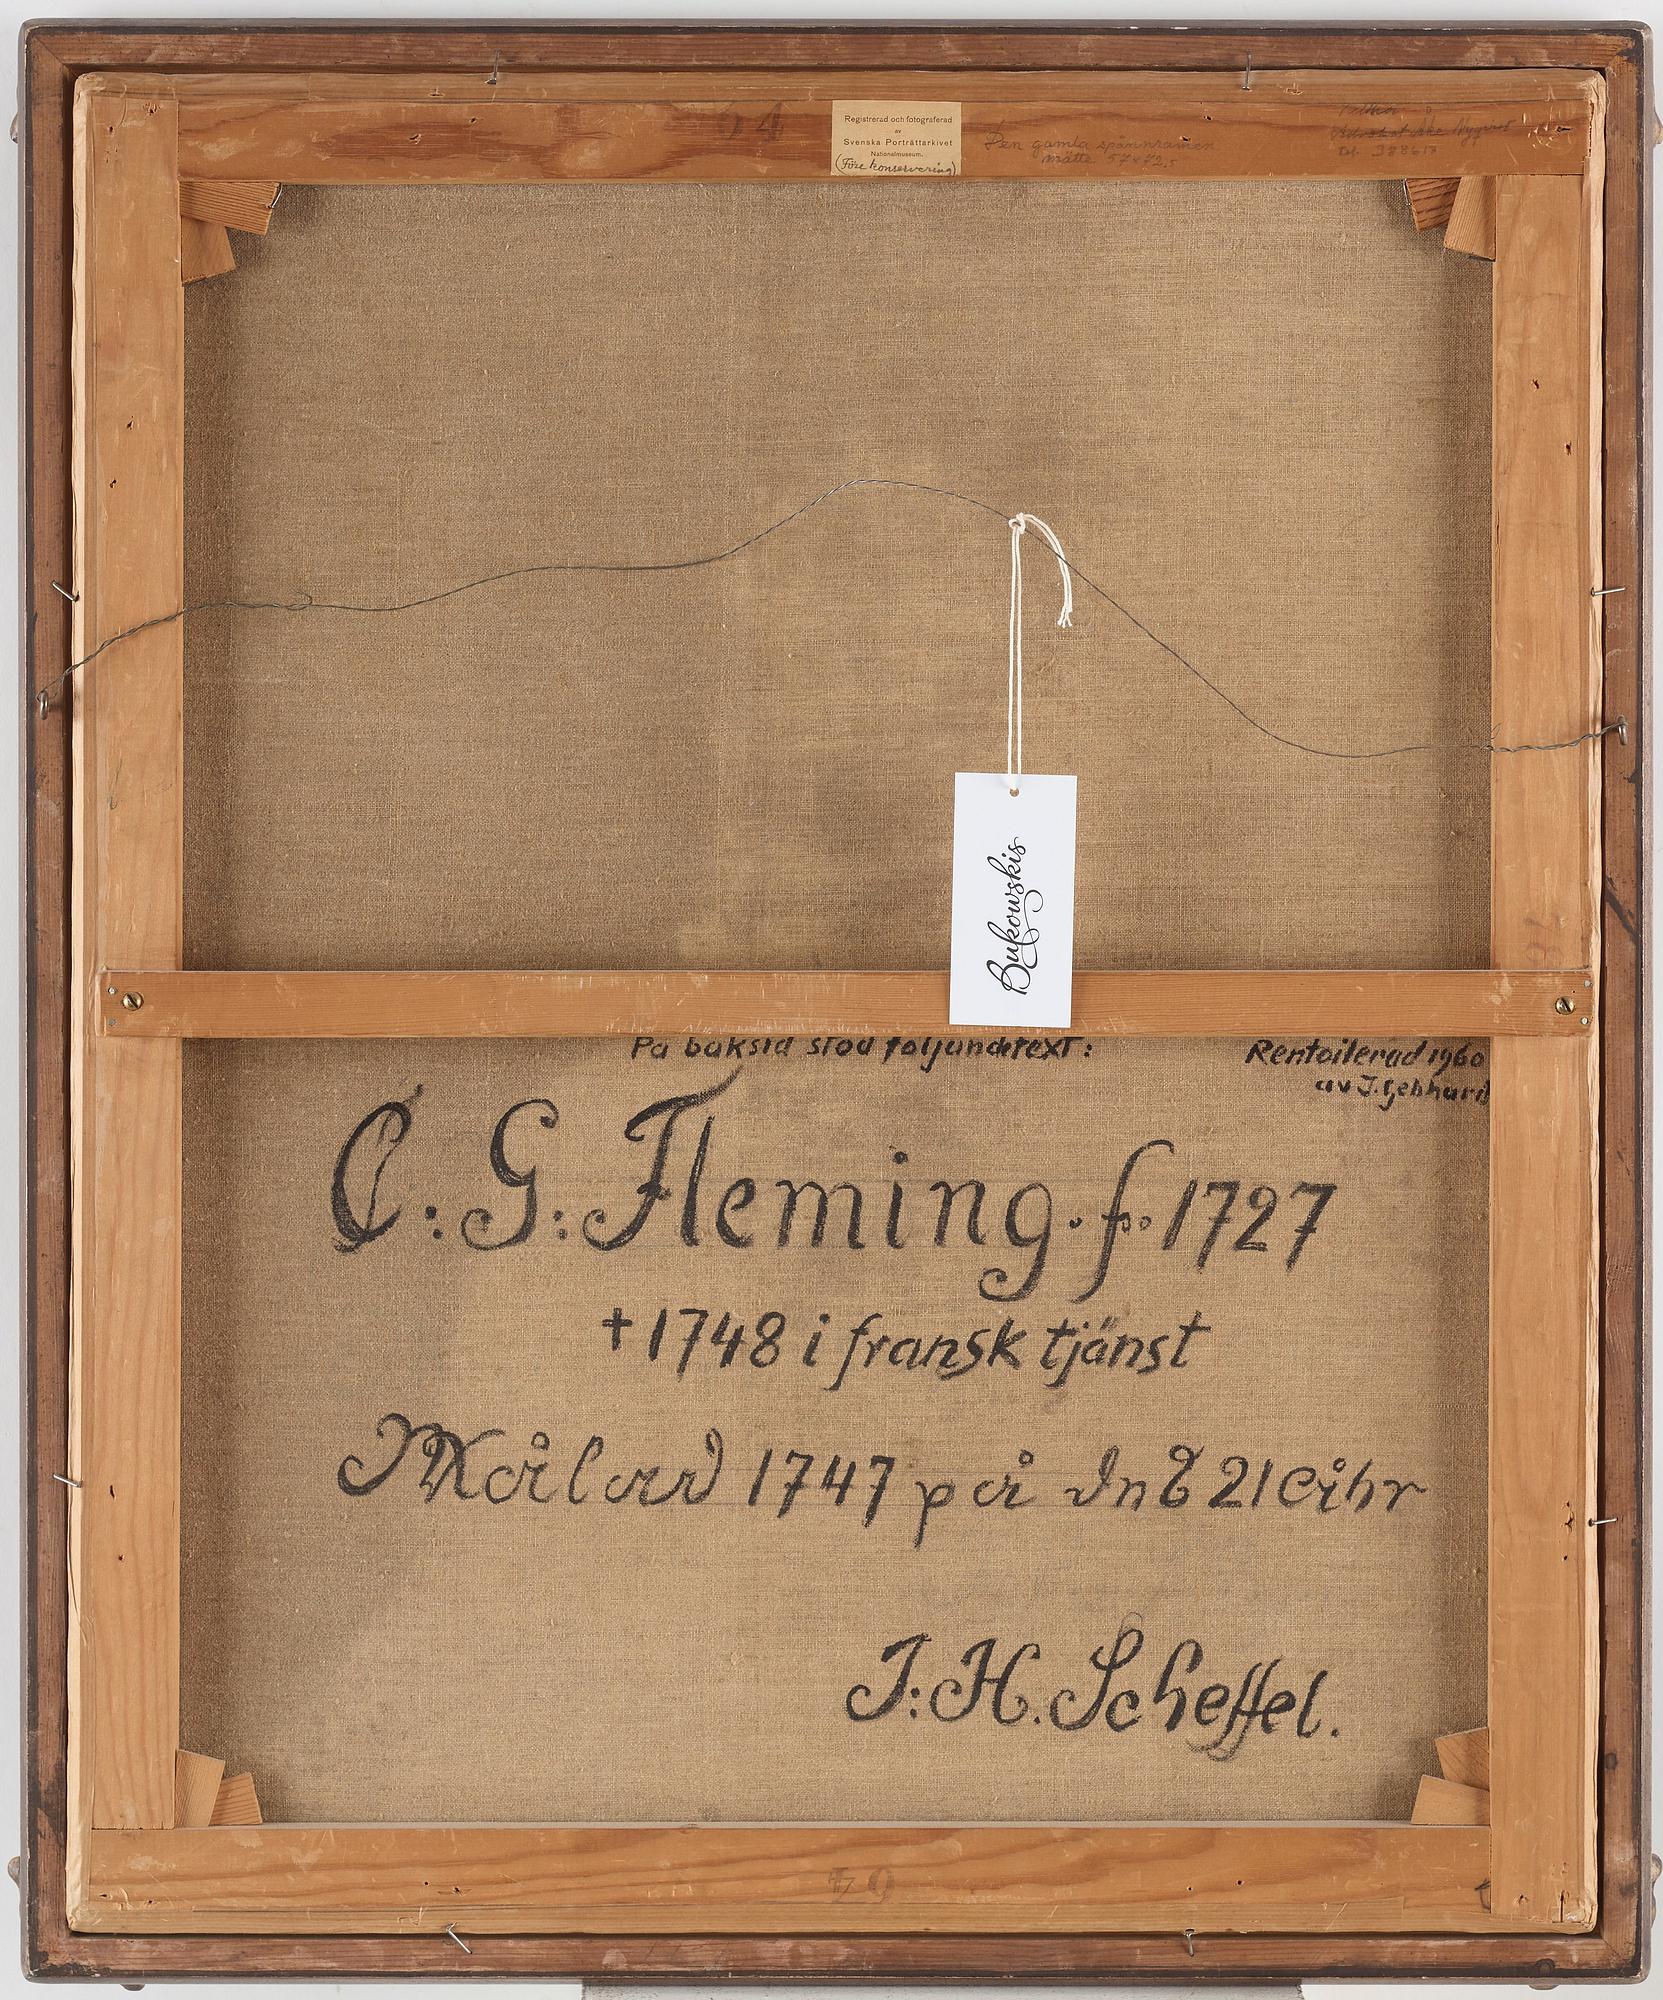 64
Registrerad och fotograferad
av
Svenska Porträttarkivet
Nationalmuseum.
(Före konservering)
Den gamla spännramen
mätte 57x72,5
Åke Nygren
Tel. 388618
Bukowskis
81
På baksid stod följande text:
Rentoilerad 1960
av J. Gebhard
C:G:Fleming. f. 1727
+1748 i fransk tjänst
Målad 1747 på dn 21 åhr
J:H.Scheffel.
64